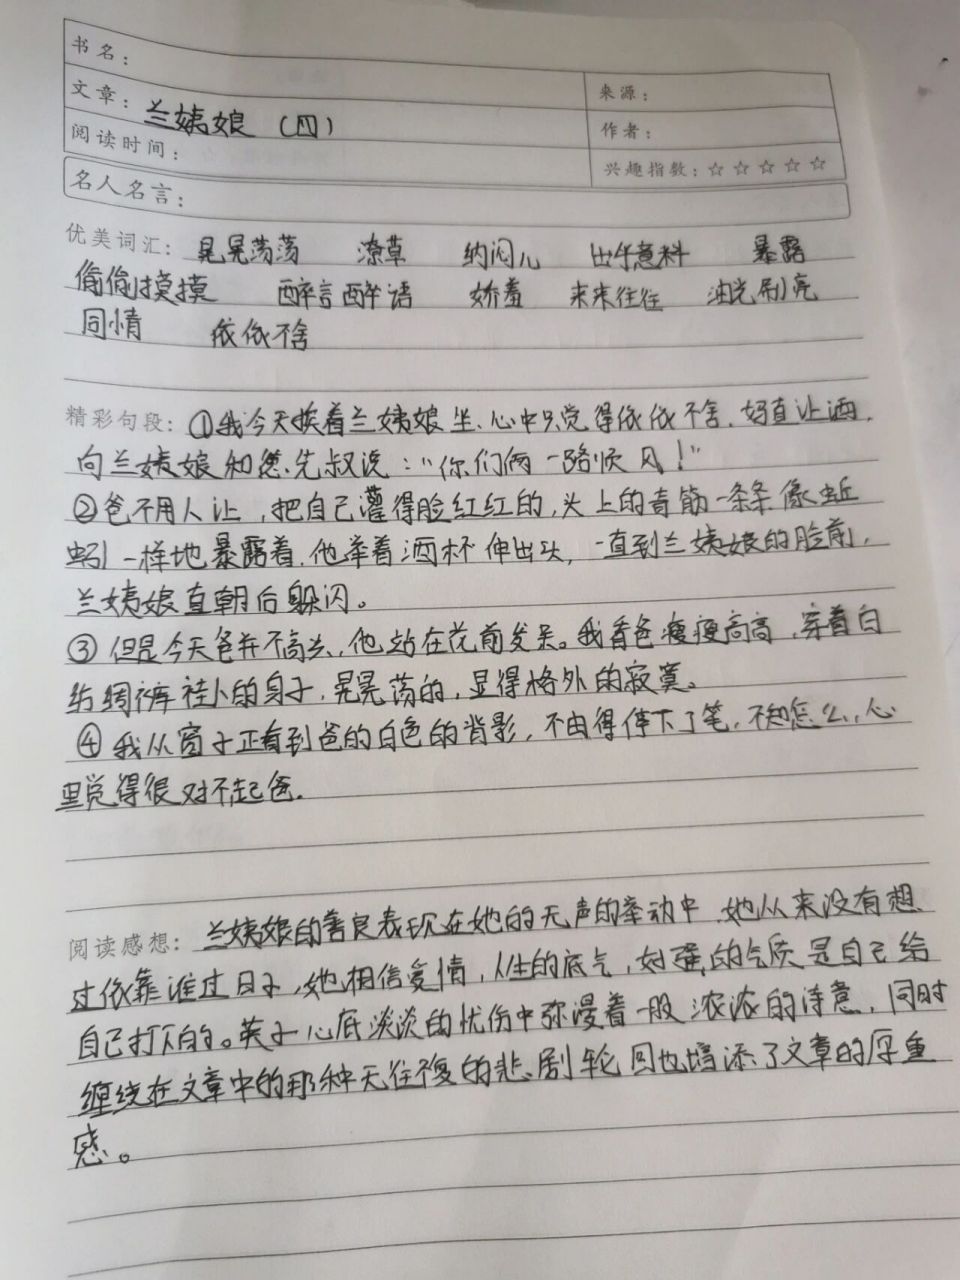 书名：
文章：兰姨娘（四）
来源：
作者：
阅读时间：
兴趣指数：☆☆☆☆☆
名人名言：
优美词汇：晃晃荡荡 潦草 纳闷儿 出乎意料 暴露
偷偷摸摸 醉言醉语 娇羞 来来往往 油光刷亮
同情 依依不舍
精彩句段：①我今天挨着兰姨娘坐、心中只觉得依依不舍，好直让酒，
向兰姨娘和德先叔说："你们俩一路顺风！"
②爸不用人让，把自己灌得脸红红的，头上的青筋一条条像蚯
蚓一样地暴露着，他举着酒杯伸出头，一直到兰姨娘的脸前，
兰姨娘直朝后躲闪。
③但是今天爸并不高兴，他站在花前发呆。我看爸瘦瘦高高，穿着白
纺绸裤褂的身子，晃晃荡的，显得格外的寂寞。
④我从窗子正看到爸的白色的背影，不由得停下了笔，不知怎么，心
里觉得很对不起爸。
阅读感想：兰姨娘的善良表现在她的无声的举动中，她从来没有想
过依靠谁过日子，她相信爱情，人生的底气，好强的气质是自己给
自己打下的。英子心底淡淡的忧伤中弥漫着一股浓浓的诗意，同时
缠绕在文章中的那种无往不复的悲剧轮回也增添了文章的厚重
感。